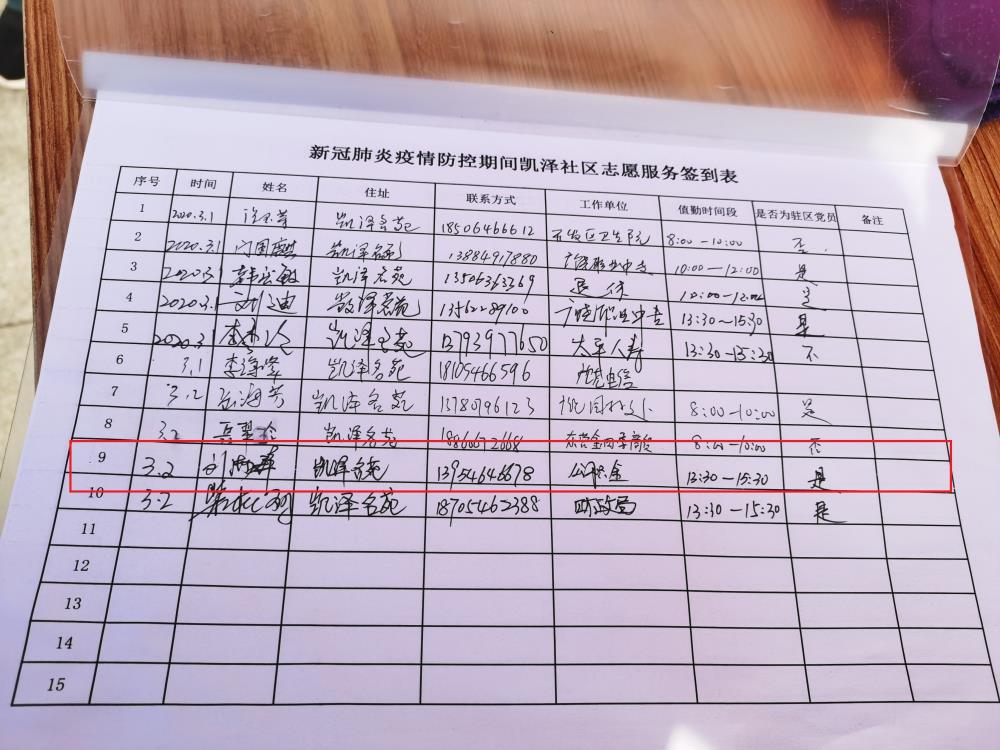 新冠肺炎疫情防控期间凯泽社区志愿服务签到表
序号 时间 姓名 住址 联系方式 工作单位 值勤时间段 是否为驻区党员 备注
1 2020.3.1 凯泽名苑 18506466612 8:00-10:00 否
2 2020.3.1 凯泽名苑 13884917880 10:00-12:00 是
3 2020.3.1 凯泽名苑 13506363369 退休 10:00-12:00
4 2020.3.1 刘迪 凯泽名苑 13562289100 13:30~15:30 是
5 2020.3.1 凯泽名苑 13793977650 太平人寿 13:30-15:30 否
6 3.1 凯泽名苑 18105466596
7 3.2 凯泽名苑 8:00-10:00 是
8 3.2 凯泽名苑 8:00-10:00 否
9 3.2 凯泽名苑 13954646678 公积金 13:30-15:30 是
10 3.2 凯泽名苑 18705462388 财政局 13:30-15:30 是
11
12
13
14
15